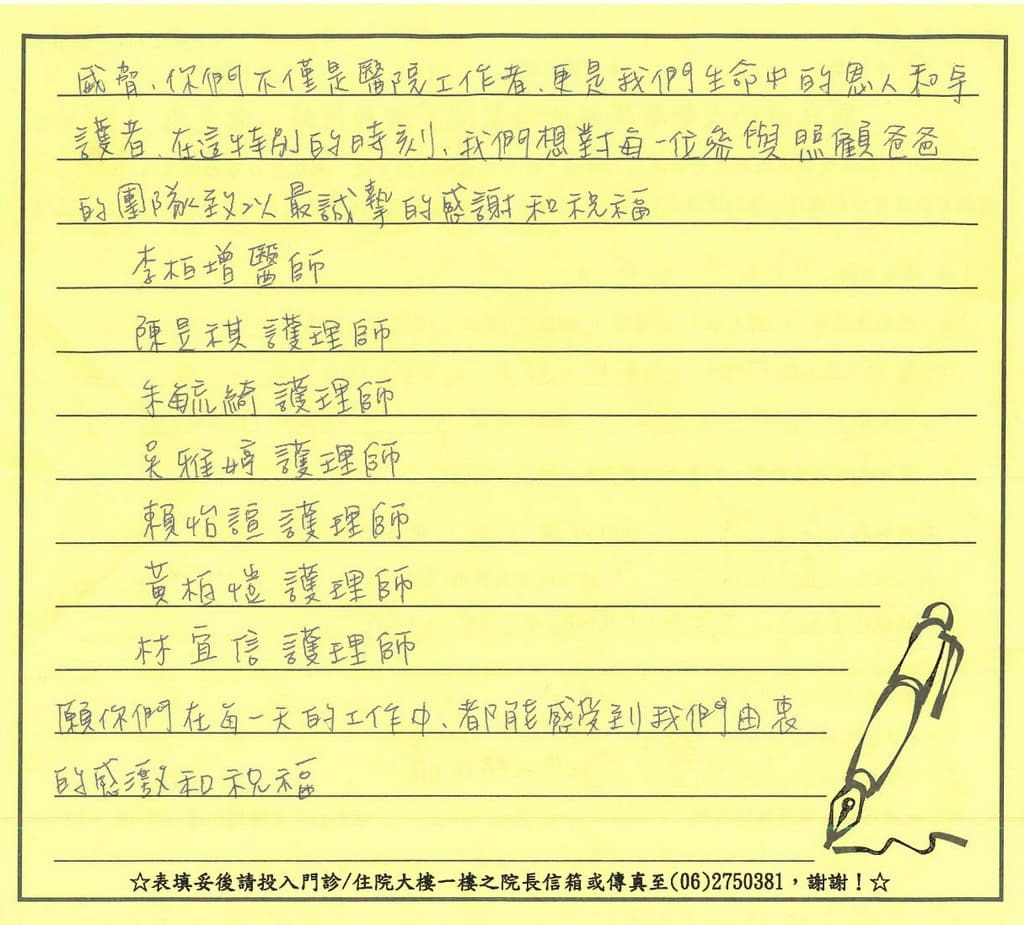 威脅、你們不僅是醫院工作者、更是我們生命中的恩人和守
護者、在這特別的時刻、我們想對每一位參與照顧爸爸
的團隊致以最誠摯的感謝和祝福
李柏增醫師
陳昱祺 護理師
朱毓綺 護理師
吳雅婷 護理師
賴怡諠 護理師
黃柏愷 護理師
林宜信 護理師
願你們在每一天的工作中、都能感受到我們由衷
的感激和祝福
☆表填妥後請投入門診/住院大樓一樓之院長信箱或傳真至(06)2750381，謝謝！☆